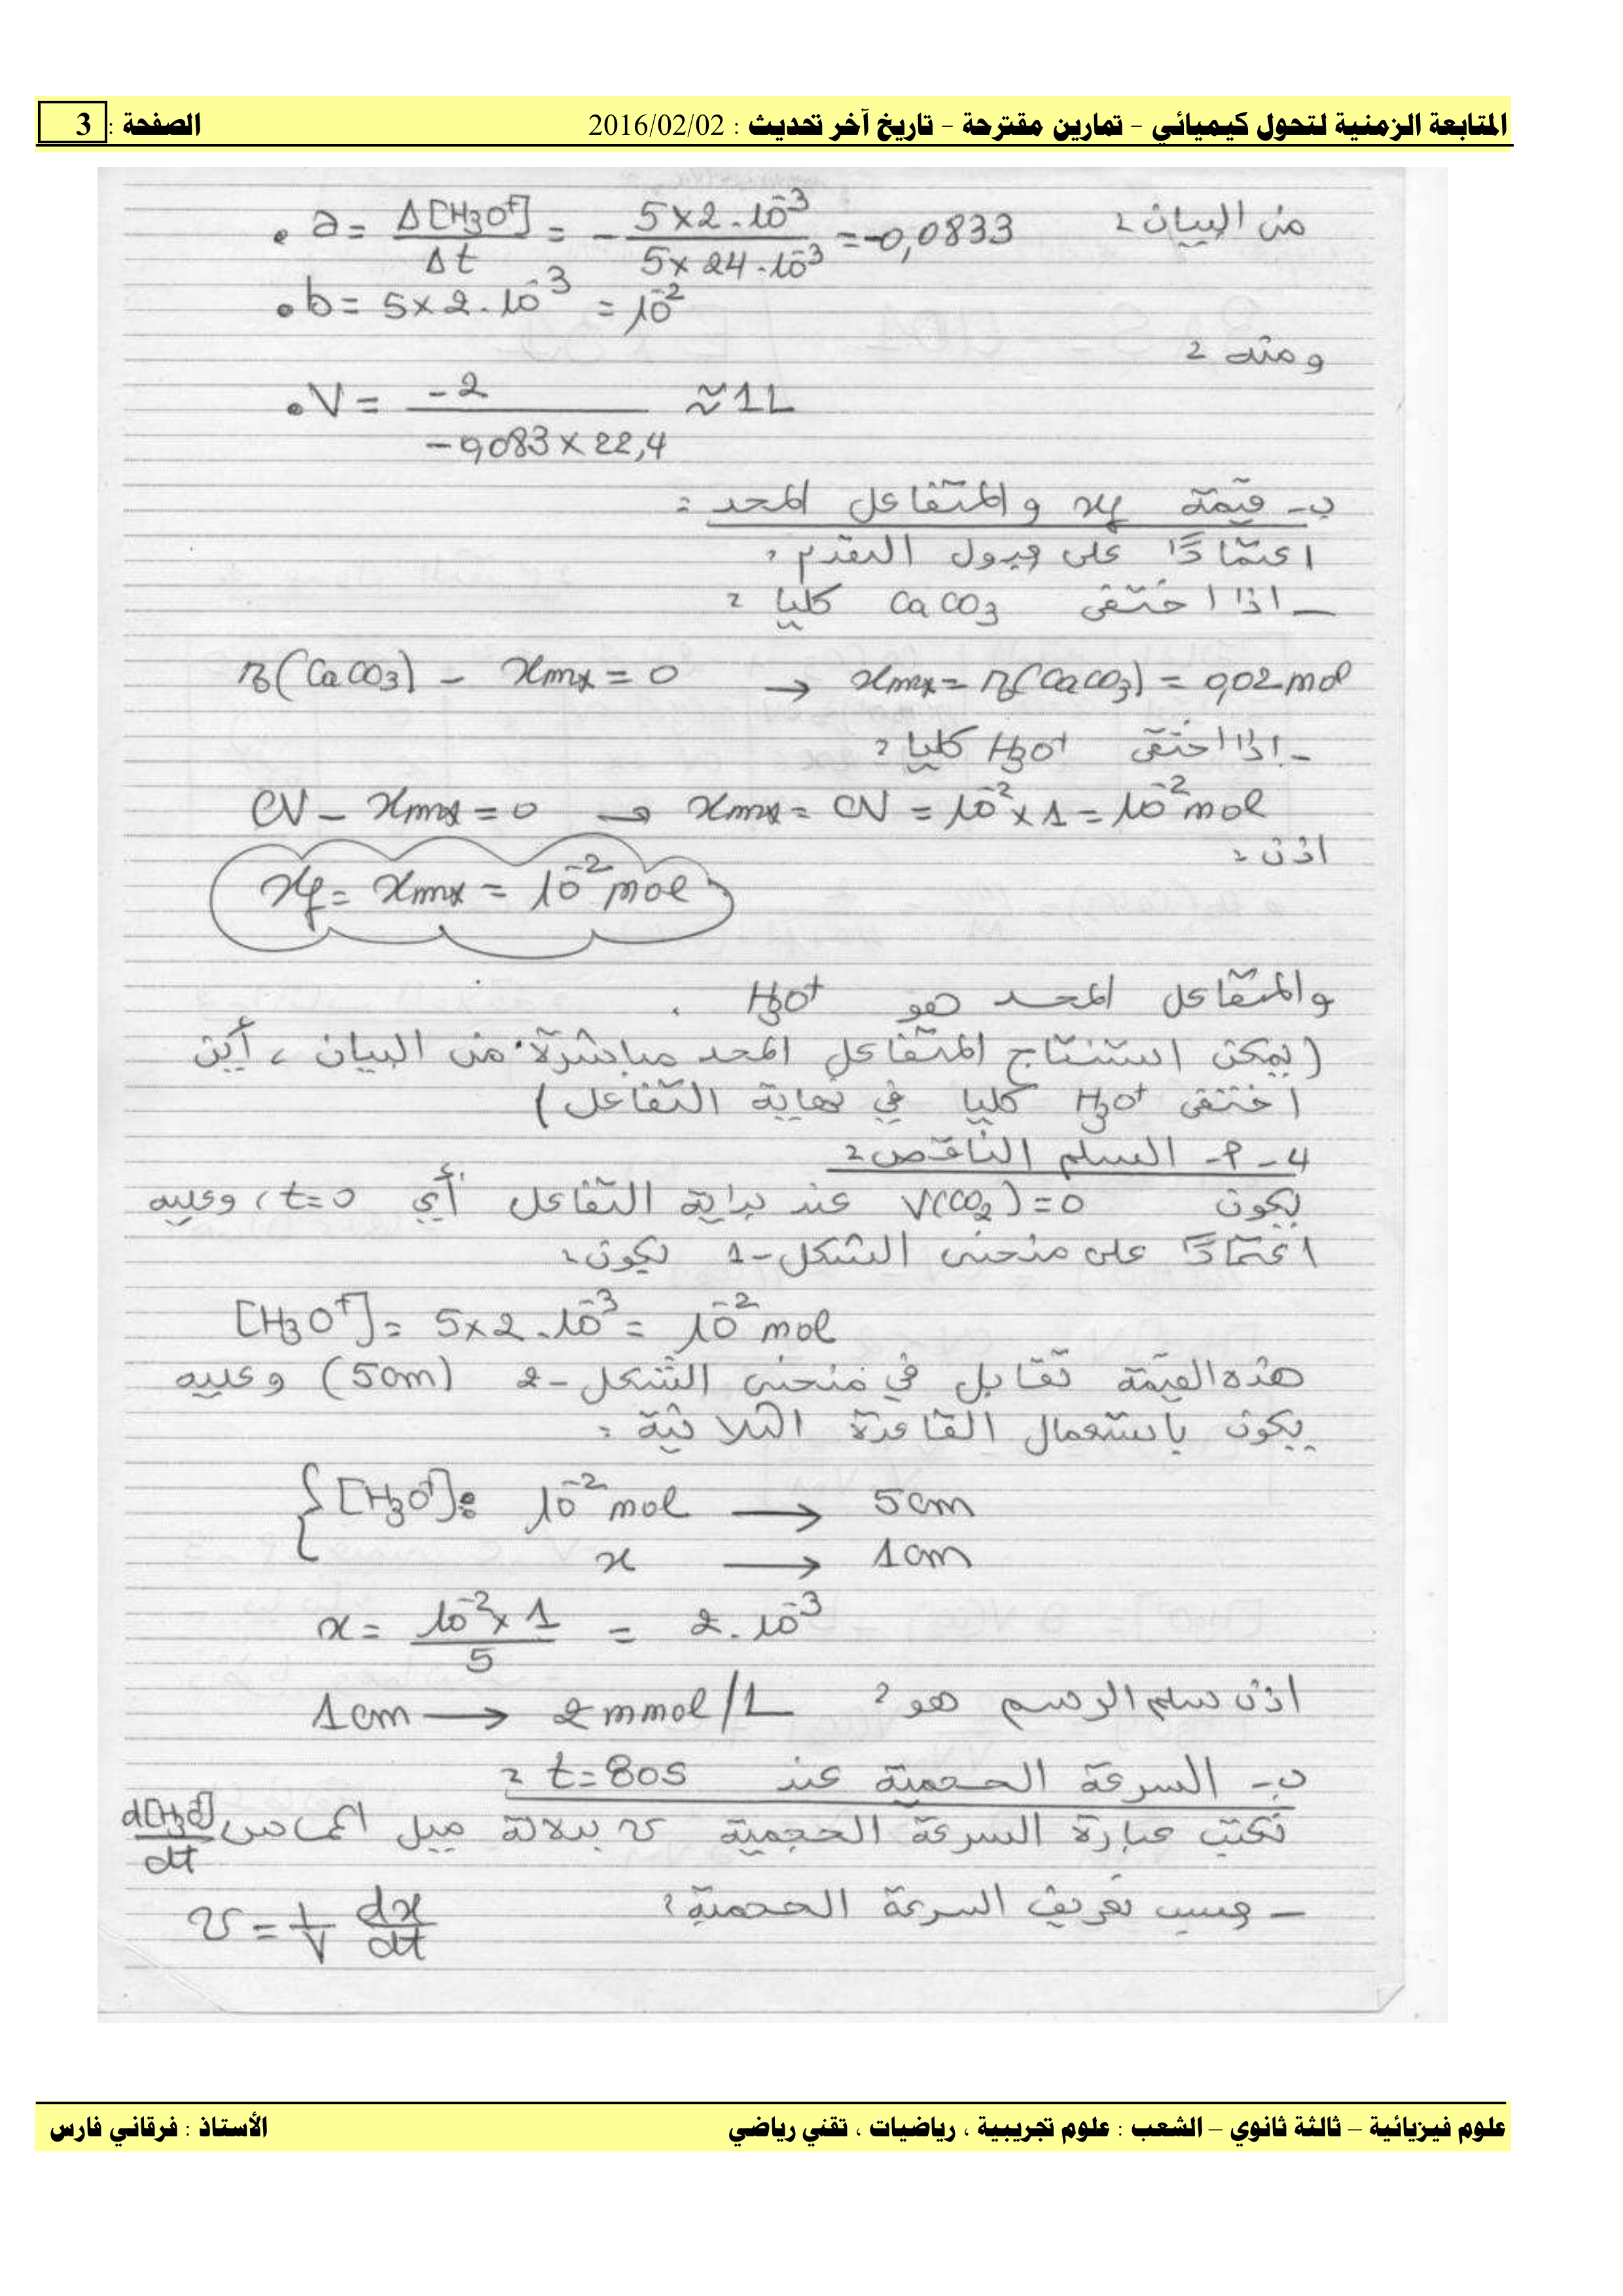 المتابعة الزمنية لتحول كيميائي – تمارين مقترحة – تاريخ آخر تحديث : 2016/02/02 الصفحة : 3
من البيان : a = Δ[H3O+]/Δt = - 5×2.10^-3 / 5×24.10^-3 = -0,0833
b = 5×2.10^-3 = 10^-2
و منه :
V = -2 / -0,083×22,4 ≈ 1L
ب- قيمة xf و المتفاعل المحد :
اعتمادًا على جدول التقدم :
- اذا اختفى CaCO3 كليا :
n0(CaCO3) - xmax = 0 → xmax = n0(CaCO3) = 0,02 mol
- اذا اختفى H3O+ كليا :
CV - xmax = 0 → xmax = CV = 10^-2 × 1 = 10^-2 mol
اذن :
xf = xmax = 10^-2 mol
و المتفاعل المحد هو H3O+ .
(يمكن استنتاج المتفاعل المحد مباشرة من البيان ، أين
اختفى H3O+ كليا في نهاية التفاعل)
4-أ- السلم الناقص :
يكون V(CO2) = 0 عند بداية التفاعل أي t=0 ، وعليه
اعتمادًا على منحنى الشكل-1 يكون :
[H3O+] = 5×2.10^-3 = 10^-2 mol
هذه القيمة تقابل في منحنى الشكل-2 (5cm) وعليه
يكون باستعمال القاعدة الثلاثية :
[H3O+]: 10^-2 mol → 5cm
x → 1cm
x = 10^-2 × 1 / 5 = 2.10^-3
اذن سلم الرسم هو : 1cm → 2 mmol/L
ب- السرعة الحجمية عند t=80s :
نكتب عبارة السرعة الحجمية v بدلالة ميل المماس d[H3O+]/dt
- حسب تعريف السرعة الحجمية : v = 1/V dx/dt
علوم فيزيائية – ثالثة ثانوي – الشعب : علوم تجريبية ، رياضيات ، تقني رياضي الأستاذ : فرقاني فارس